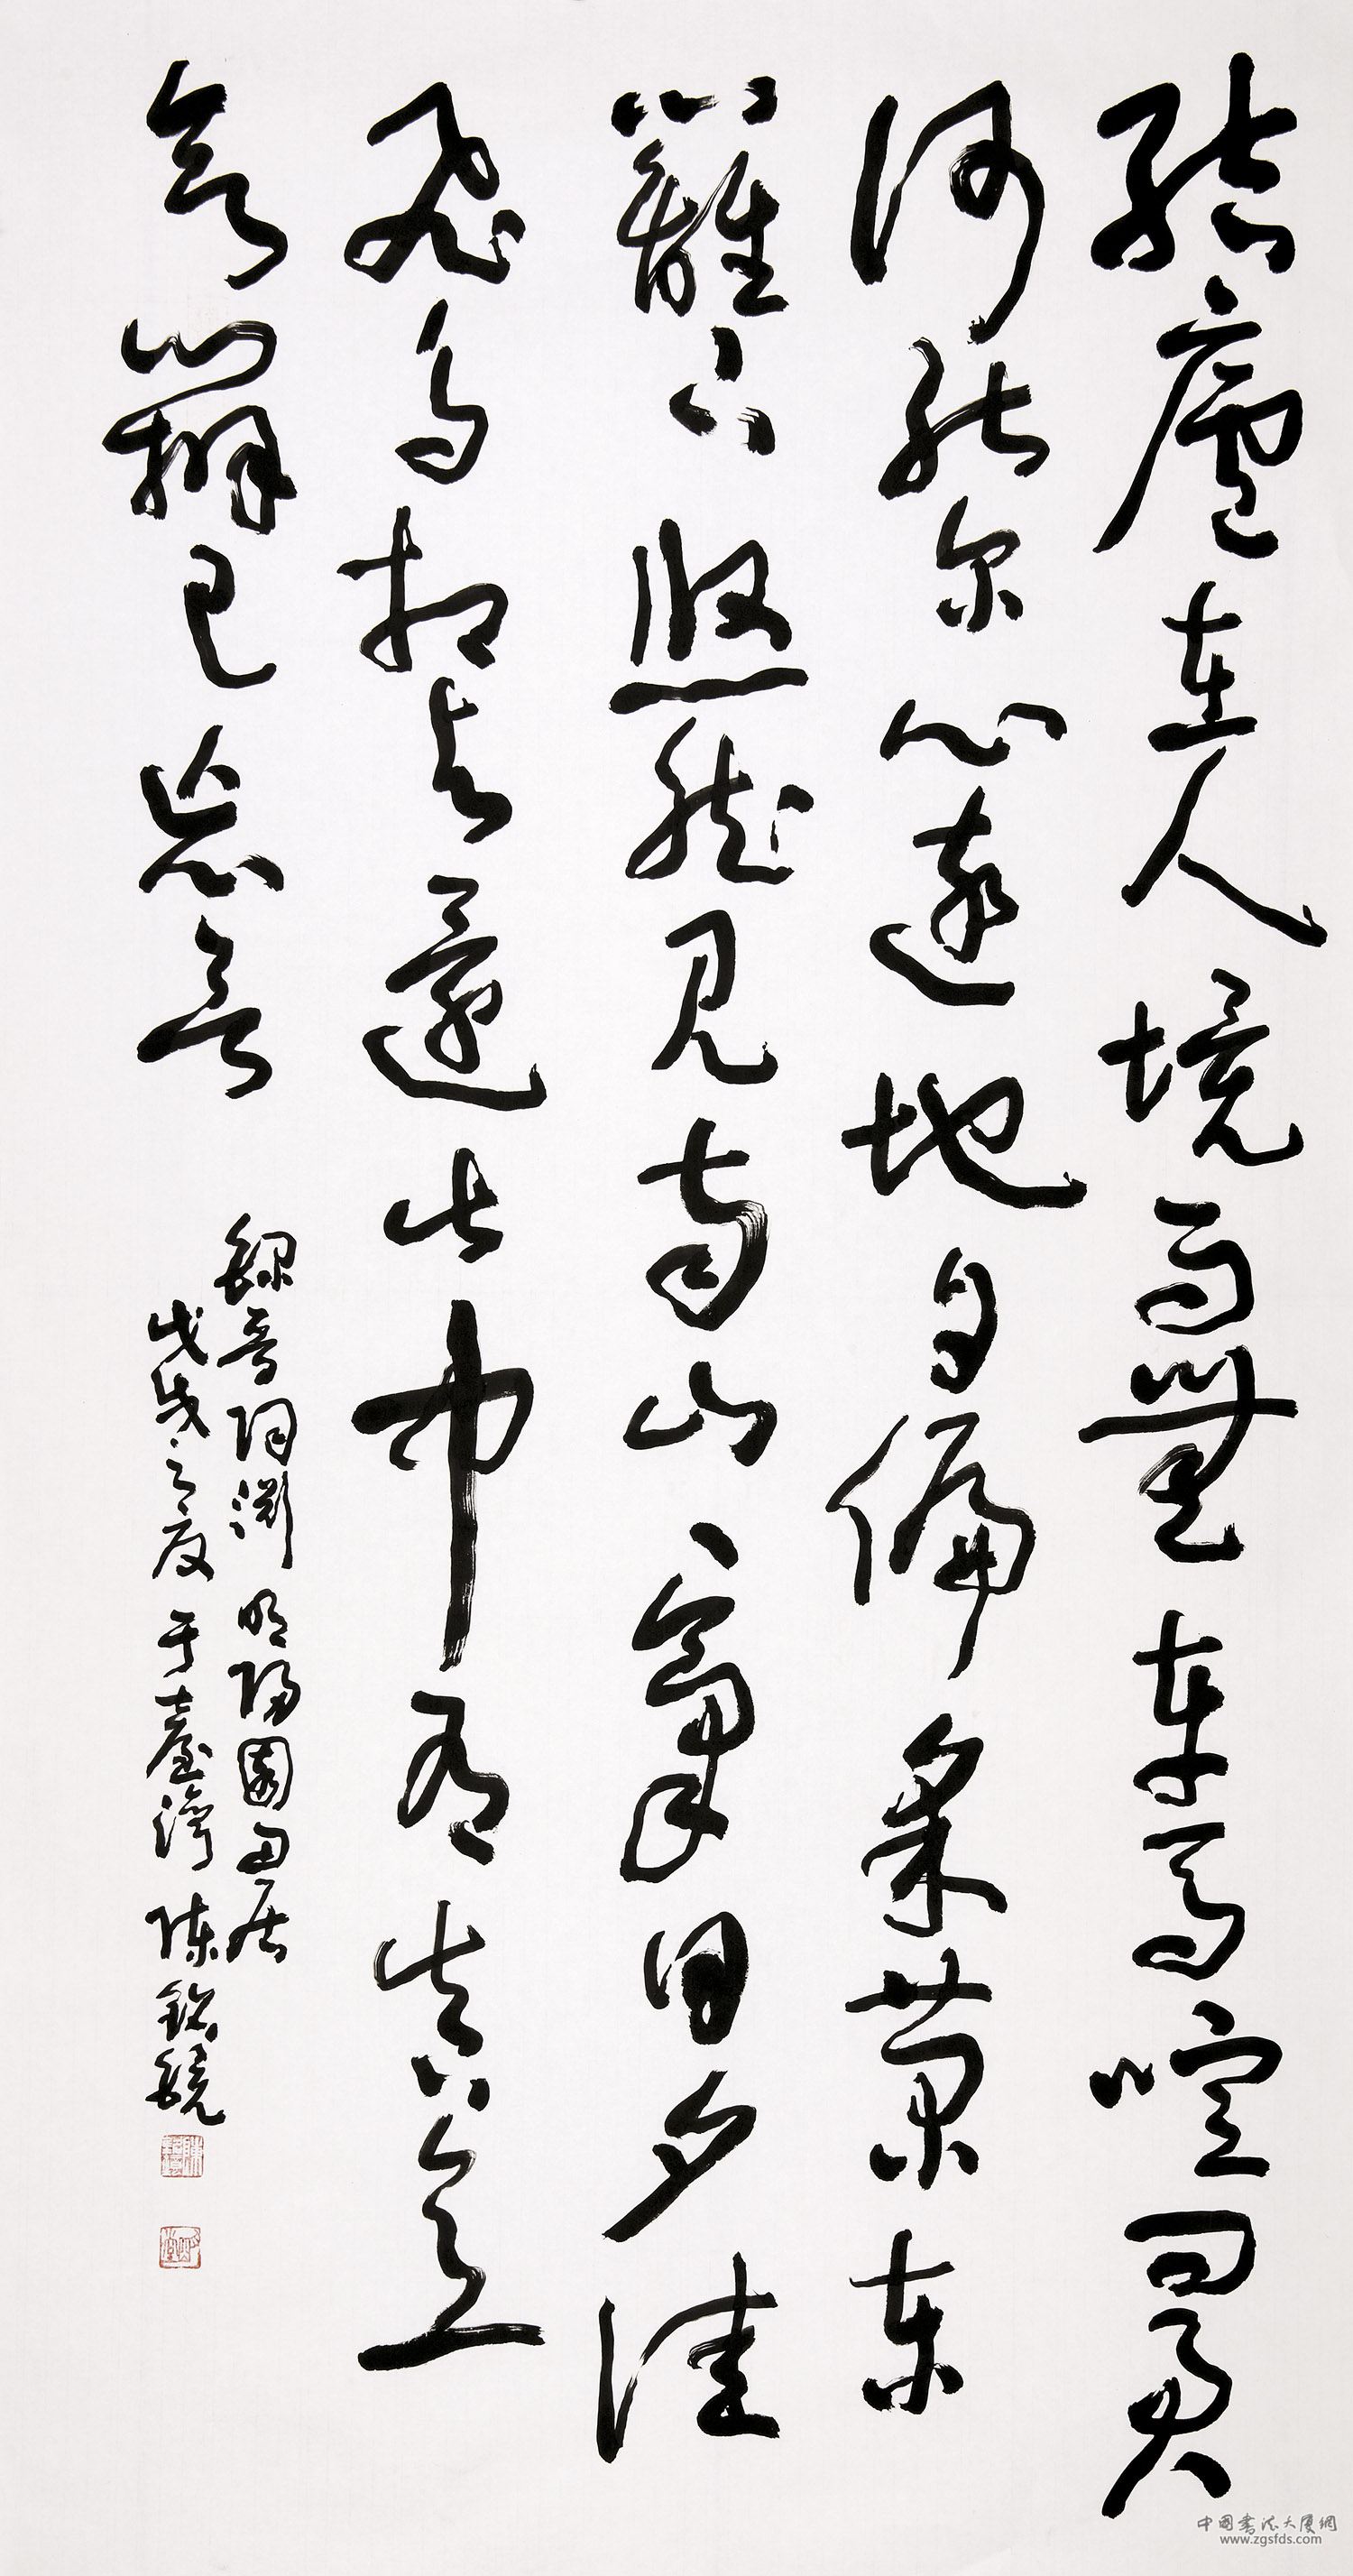 結廬在人境而無車馬喧問君
何能尔心遠地自偏采菊東
籬下悠然見南山々氣日夕佳
飛鳥相與還此中有真意
欲辨已忘言
錄晉陶淵明歸園田居
戊戌之夏于臺灣陳銘鏡
中國書法大廈網
www.zgsfds.com